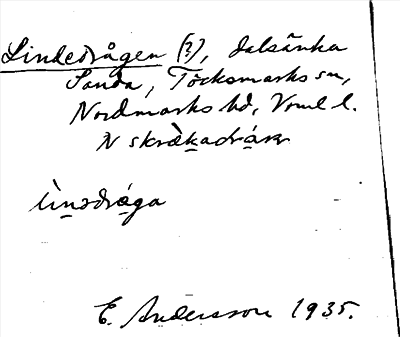 Lindedrågen (?), dalsänka
Sanda, Töcksmarks sn,
Nordmarks hd, Vrml l.
N skråkadråga
linədrəga
E. Andersson 1935.